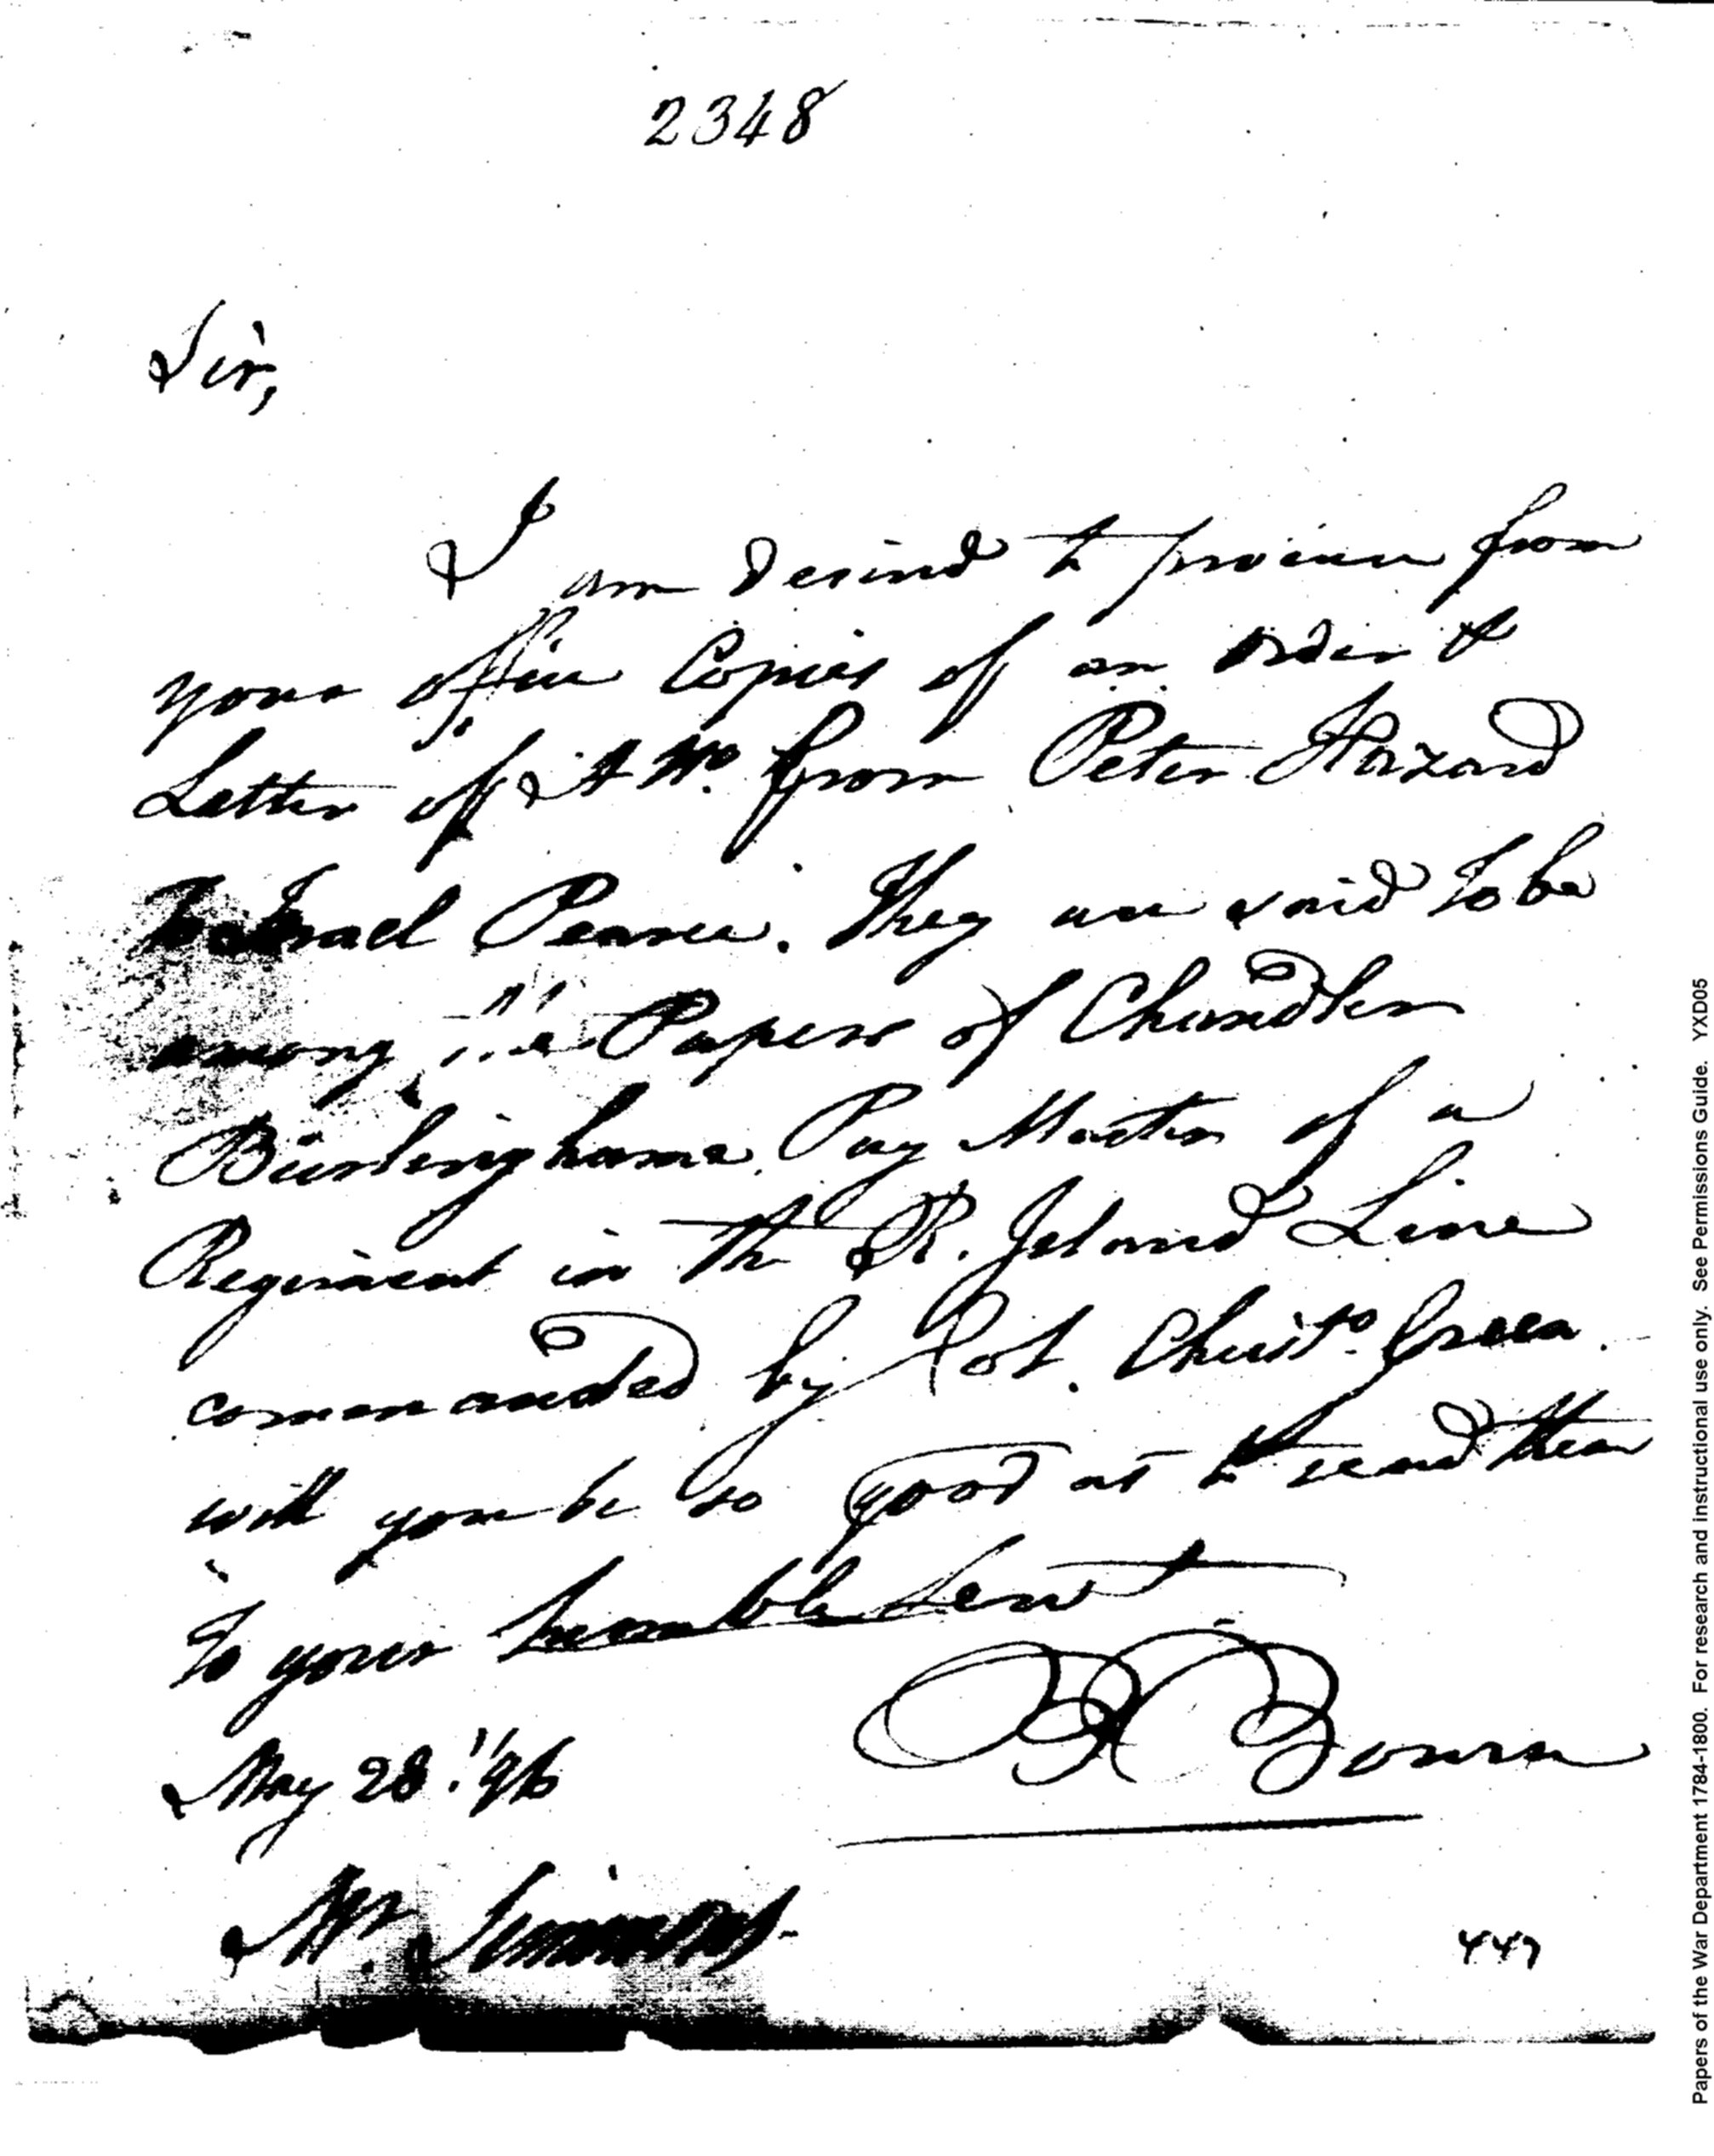 2348
Sir,
I am desired to procure from
your office Copies of an order &
Letter of from Peter Hazard
to Israel Pearce. They are said to be
among the Papers of Chandler
Burlinghame Pay Master of a
Regiment in the R. Island Line
commanded by Col. Christo. Green.
will you be so good as to send them
to your humble Servt
B Bourn
May 28. 1796
Mr. Simmons
447
Papers of the War Department 1784-1800. For research and instructional use only. See Permissions Guide. YXD05